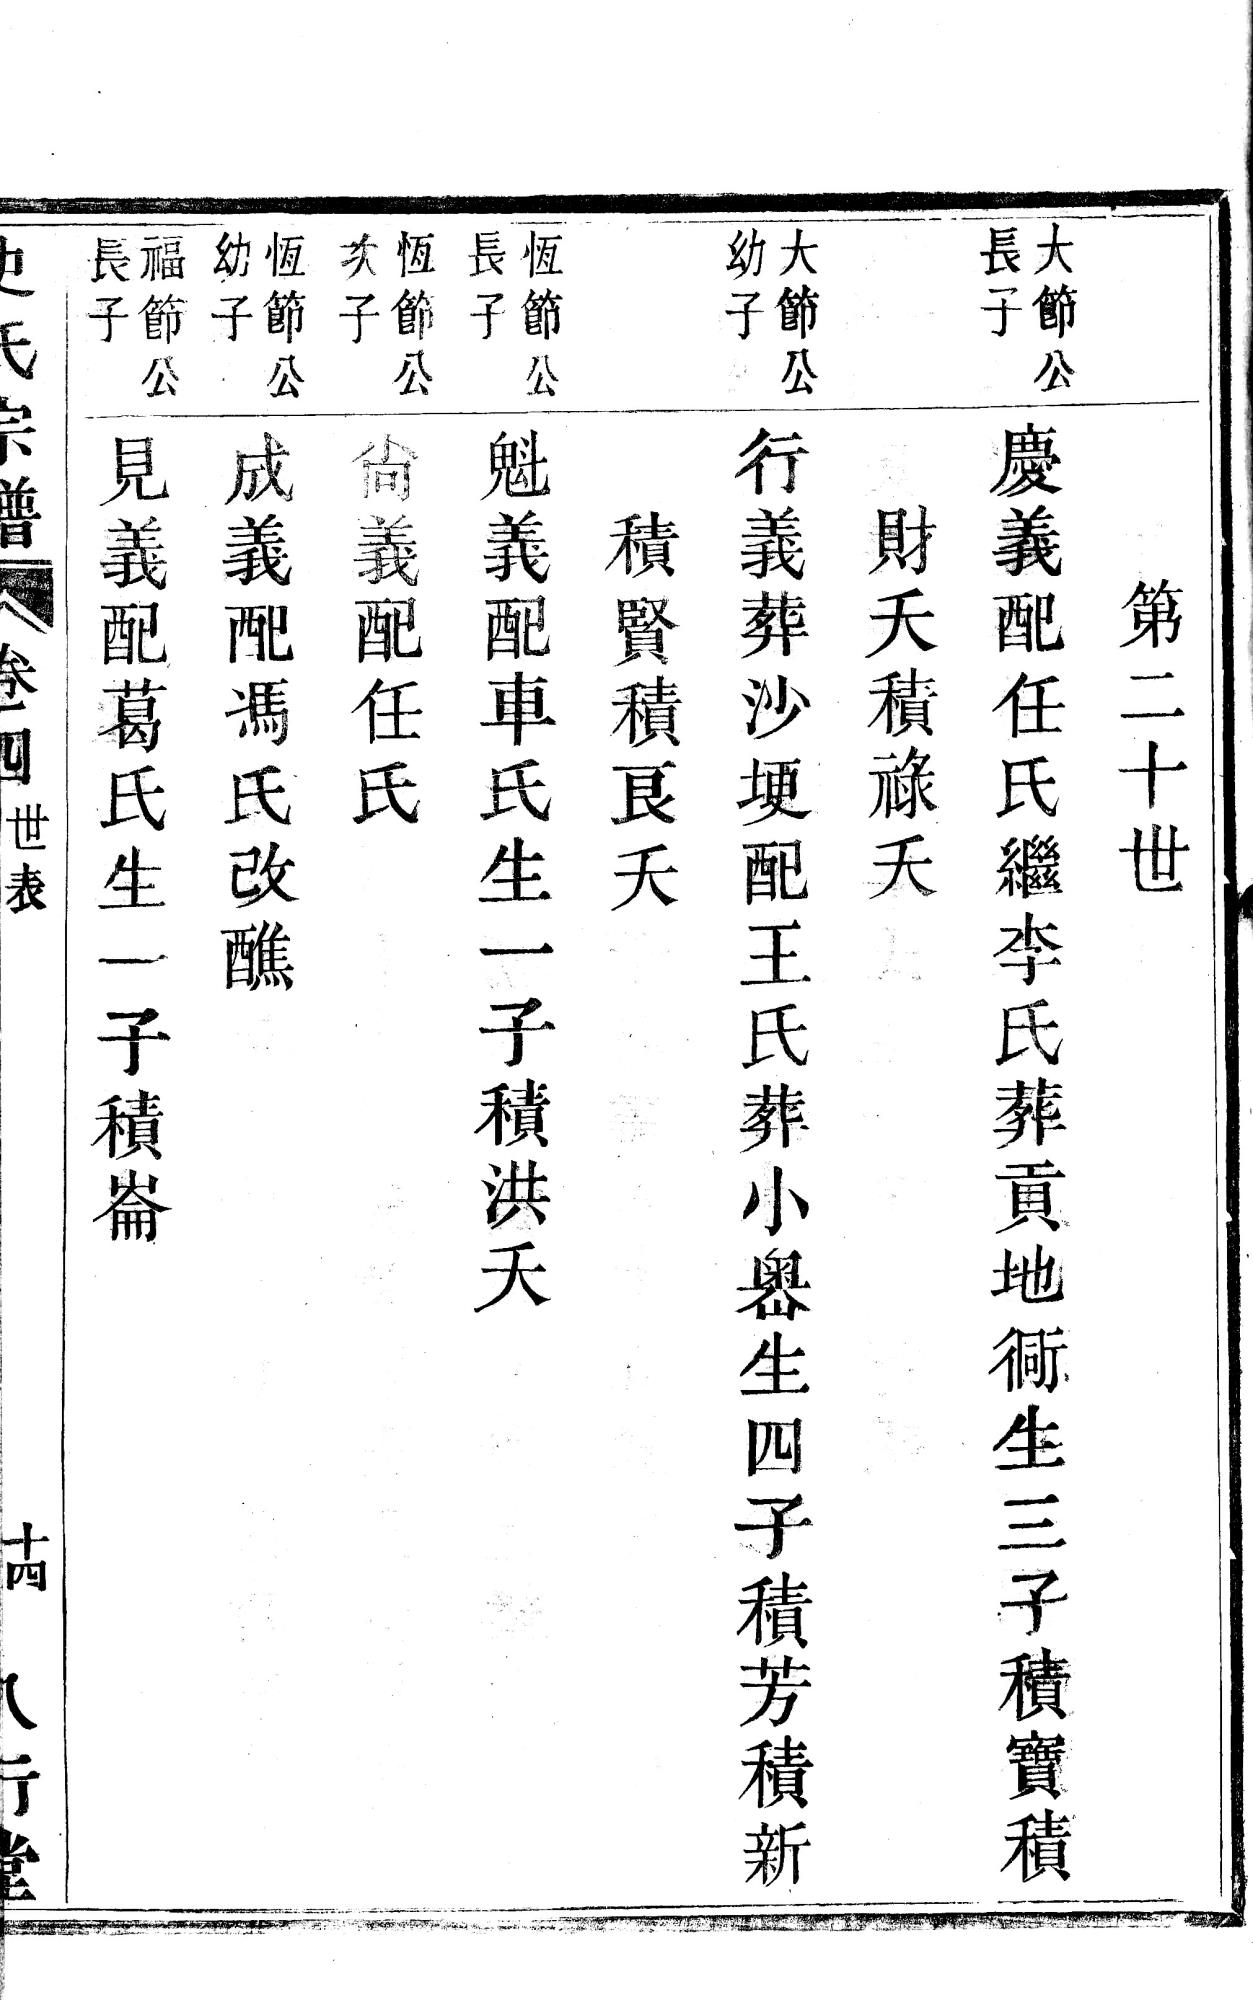 第二十世
大節公
長子
慶義配任氏繼李氏葬貢地衕生三子積寶積
財夭積祿夭
大節公
幼子
行義葬沙埂配王氏葬小嶴生四子積芳積新
積賢積良夭
恆節公
長子
魁義配車氏生一子積洪夭
恆節公
次子
尙義配任氏
恆節公
幼子
成義配馮氏改醮
福節公
長子
見義配葛氏生一子積崙
史氏宗譜 卷四 世表 十四 八行堂